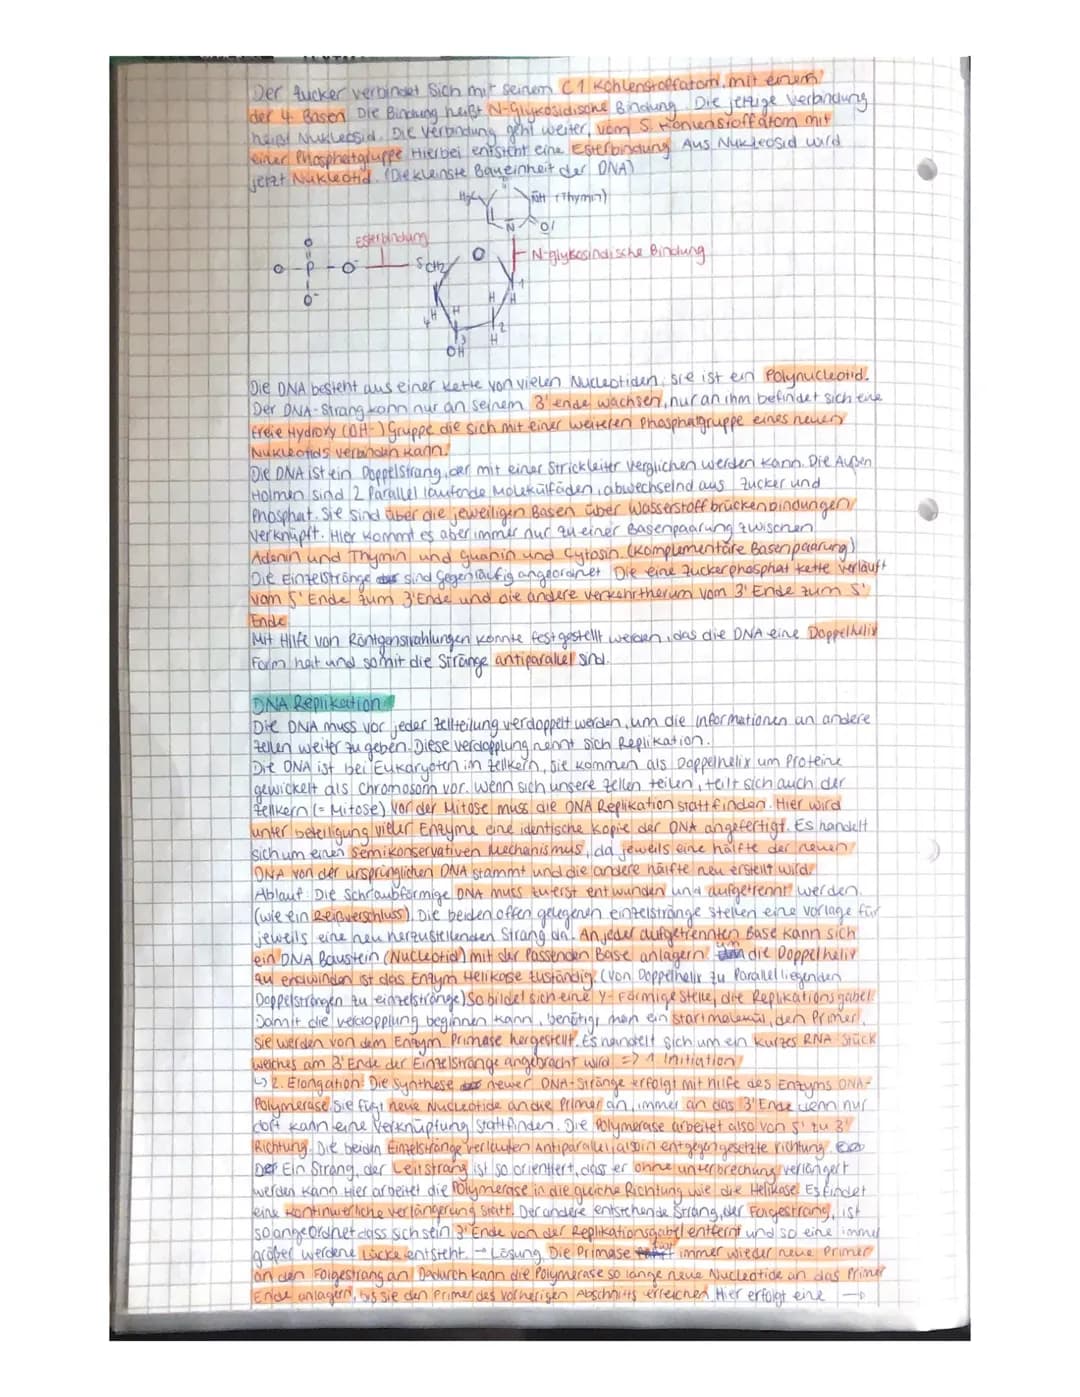 Der Zucker verbindet sich mit seinem C1 Kohlenstoffatom, mit einem
der 4 Basen. Die Bindung heißt N-Glykosidische Bindung. Die jetzige Verbindung
heißt Nukleosid. Die Verbindung geht weiter, vom 5. Kohlenstoffatom mit
einer Phosphatgruppe. Hierbei entsteht eine Esterbindung. Aus Nukleosid wird
jetzt Nukleotid. (Die kleinste Baueinheit der DNA)
H3C NH (Thymin)
N O
Esterbindung
O
O - P - O 5 CH2 O N-glykosindische Bindung
O-
1
4 H H H H
3 2
OH H
Die DNA besteht aus einer Kette von vielen Nucleotiden, sie ist ein Polynucleotid.
Der DNA-Strang kann nur an seinem 3' ende wachsen, nur an ihm befindet sich eine
freie Hydroxy (OH-) Gruppe die sich mit einer weiteren Phosphatgruppe eines neuen
Nukleotids verbinden kann.
Die DNA ist ein Doppelstrang, der mit einer Strickleiter verglichen werden kann. Die Außen
Holmen sind 2 Parallel laufende Molekülfäden, abwechselnd aus Zucker und
Phosphat. Sie sind über die jeweiligen Basen über Wasserstoffbrückenbindungen
verknüpft. Hier kommt es aber immer nur zu einer Basenpaarung zwischen
Adenin und Thymin und Guanin und Cytosin. (Komplementäre Basenpaarung)
Die Einzelstränge sind Gegenläufig angeordnet. Die eine Zuckerphosphat kette verläuft
vom 5' Ende zum 3' Ende und die andere verkehrtherum vom 3' Ende zum 5'
Ende.
Mit Hilfe von Röntgenstrahlungen konnte festgestellt werden, das die DNA eine Doppelhelix
Form hat und somit die Stränge antiparallel sind.
DNA Replikation
Die DNA muss vor jeder Zellteilung verdoppelt werden, um die Informationen an andere
Zellen weiter zu geben. Diese Verdopplung nennt sich Replikation.
Die DNA ist bei Eukaryoten im Zellkern, sie kommen als Doppelhelix um Proteine
gewickelt als Chromosom vor. Wenn sich unsere Zellen teilen, teilt sich auch der
Zellkern (= Mitose) Vor der Mitose muss die DNA Replikation stattfinden. Hier wird
unter beteiligung vieler Enzyme eine identische Kopie der DNA angefertigt. Es handelt
sich um einen Semikonservativen Mechanismus, da jeweils eine hälfte der neuen
DNA von der ursprünglichen DNA stammt und die andere hälfte neu erstellt wird.
Ablauf: Die Schraubförmige DNA muss zuerst entwunden und aufgetrennt werden.
(wie ein Reißverschluss). Die beiden offen gelegenen einzelstränge stellen eine vorlage für
jeweils eine neu herzustellenden Strang da. An jeder aufgetrennten Base kann sich
ein DNA Baustein (Nucleotid) mit der Passenden Base anlagern. um die Doppelhelix
zu entwinden ist das Enzym Helikase zuständig. (von Doppelhelix zu Parallel liegenden
Doppelsträngen zu einzelstränge) So bildet sich eine Y-Förmige Stelle, die Replikationsgabel.
Damit die verdopplung beginnen kann, benötigt man ein Startmolekül, den Primer.
Sie werden von dem Enzym Primase hergestellt. Es handelt sich um ein kurzes RNA-Stück
welches am 3' Ende der Einzelstränge angebracht wird => 1. Initiation
↳ 2. Elongation: Die Synthese neuer DNA-Stränge erfolgt mit hilfe des Enzyms DNA-
Polymerase. Sie fügt neue Nucleotide an die Primer an, immer an das 3' Ende, denn nur
dort kann eine Verknüpfung stattfinden. Die Polymerase arbeitet also von 5' zu 3'
Richtung. Die beiden Einzelstränge verlaufen Antiparallel, also in entgegengesetzte richtung.
Der Ein Strang, der Leitstrang ist so orientiert, dass er ohne unterbrechung verlängert
werden kann. Hier arbeitet die Polymerase in die gleiche Richtung wie die Helikase. Es findet
eine kontinuierliche verlängerung statt. Der andere entstehende Strang, der Folgestrang, ist
so angeordnet dass sich sein 3' Ende von der Replikationsgabel entfernt und so eine immer
größer werdene Lücke entsteht. → Lösung. Die Primase fügt immer wieder neue Primer
an den Folgestrang an. Dadurch kann die Polymerase so lange neue Nucleotide an das Primer
Ende anlagern, bis sie den Primer des vorherigen Abschnitts erreichen. Hier erfolgt eine →